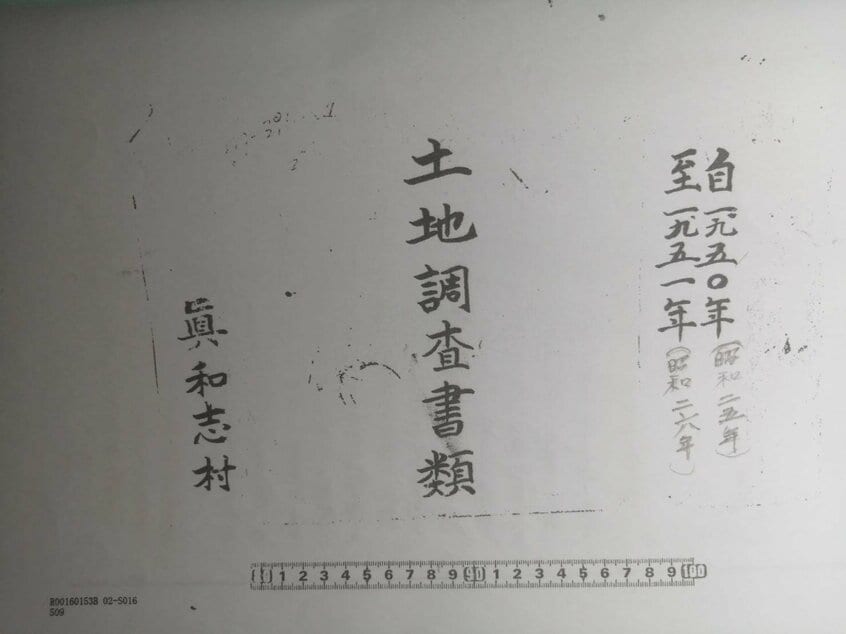 自一九五〇年(昭和二五年)
至一九五一年(昭和二六年)
土地調査書類
眞和志村
1 2 3 4 5 6 7 8 9 90 1 2 3 4 5 6 7 8 9 100
R00160153B 02-S016
S09